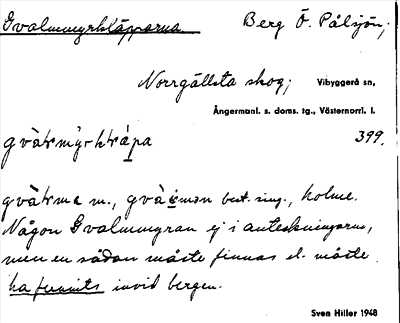 Gvalmmyrkläpparna Berg Ö. Pålsjön,
Norrgällsta skog; Vibyggerå sn,
Ångermanl. s. doms. tg., Västernorrl. l.
399.
m., best. sing., holme.
Någon Gvalmmyran ej i anteckningarna,
men en sådan måste finnas el. måste
ha funnits invid bergen.
Sven Hiller 1948